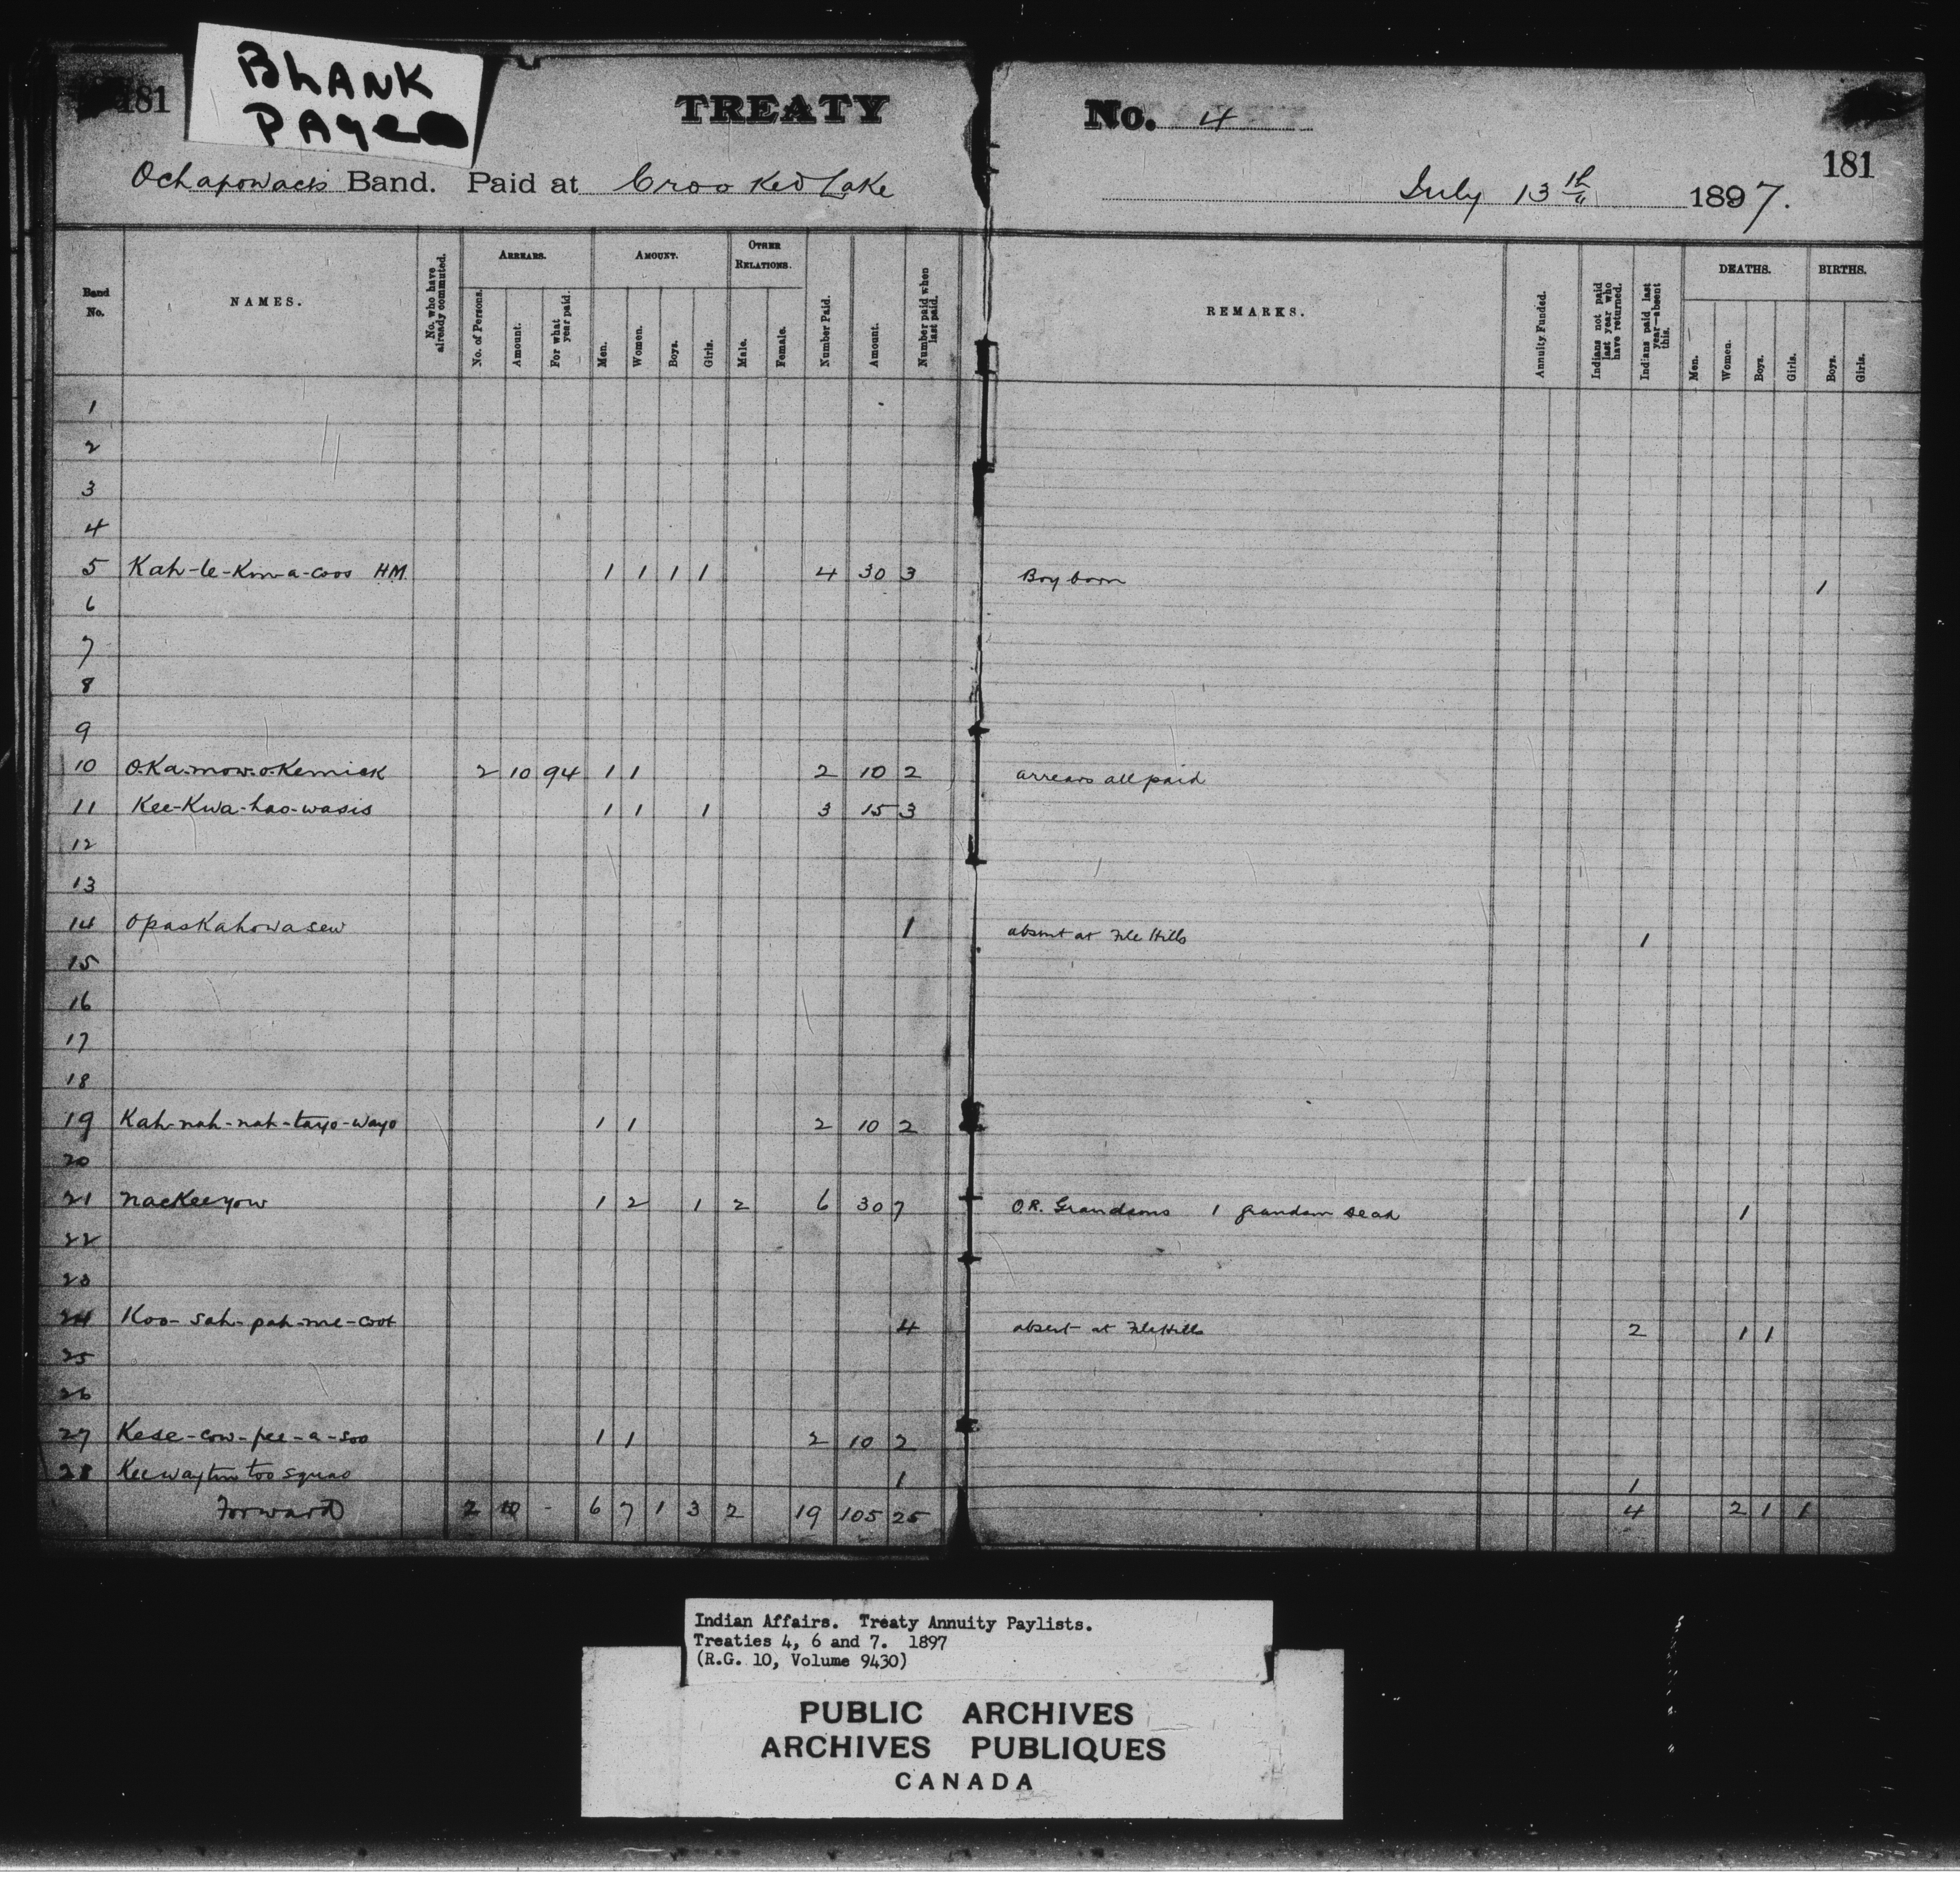 BLANK
PAGE
181
TREATY No. 4
181
Ochapowace's Band. Paid at Crooked Lake July 13th 1897.
Band No. NAMES. No. who have already commuted. ARREARS. No. of Persons. Amount. For what year paid. AMOUNT. Men. Women. Boys. Girls. OTHER RELATIONS. Male. Female. Number Paid. Amount. Number paid when last paid. REMARKS. Annuity Funded. Indians not paid last year who have returned. Indians paid last year—absent this. DEATHS. Men. Women. Boys. Girls. BIRTHS. Boys. Girls.
1
2
3
4
5 Kah-te-Kin-a-coos H.M. 1 1 1 1 4 30 3 Boy born 1
6
7
8
9
10 O.Ka.mow.o.Kemick 2 10 94 1 1 2 10 2 arrears all paid
11 Kee-Kwa-hao-wasis 1 1 1 3 15 3
12
13
14 Opaskahowasew 1 absent at File Hills 1
15
16
17
18
19 Kah-nah-nah-tayo-wayo 1 1 2 10 2
20
21 nackeeyow 1 2 1 2 6 30 7 O.R. Grandsons 1 grandson dead 1
22
23
24 Koo-sah-pah-me-coot 4 absent at File Hills 2 1 1
25
26
27 Kese-cow-pee-a-soo 1 1 2 10 2
28 Keewaytin too squao 1 1
Forward 2 10 - 6 7 1 3 2 19 105 25 4 2 1 1
Indian Affairs. Treaty Annuity Paylists.
Treaties 4, 6 and 7. 1897
(R.G. 10, Volume 9430)
PUBLIC ARCHIVES
ARCHIVES PUBLIQUES
CANADA